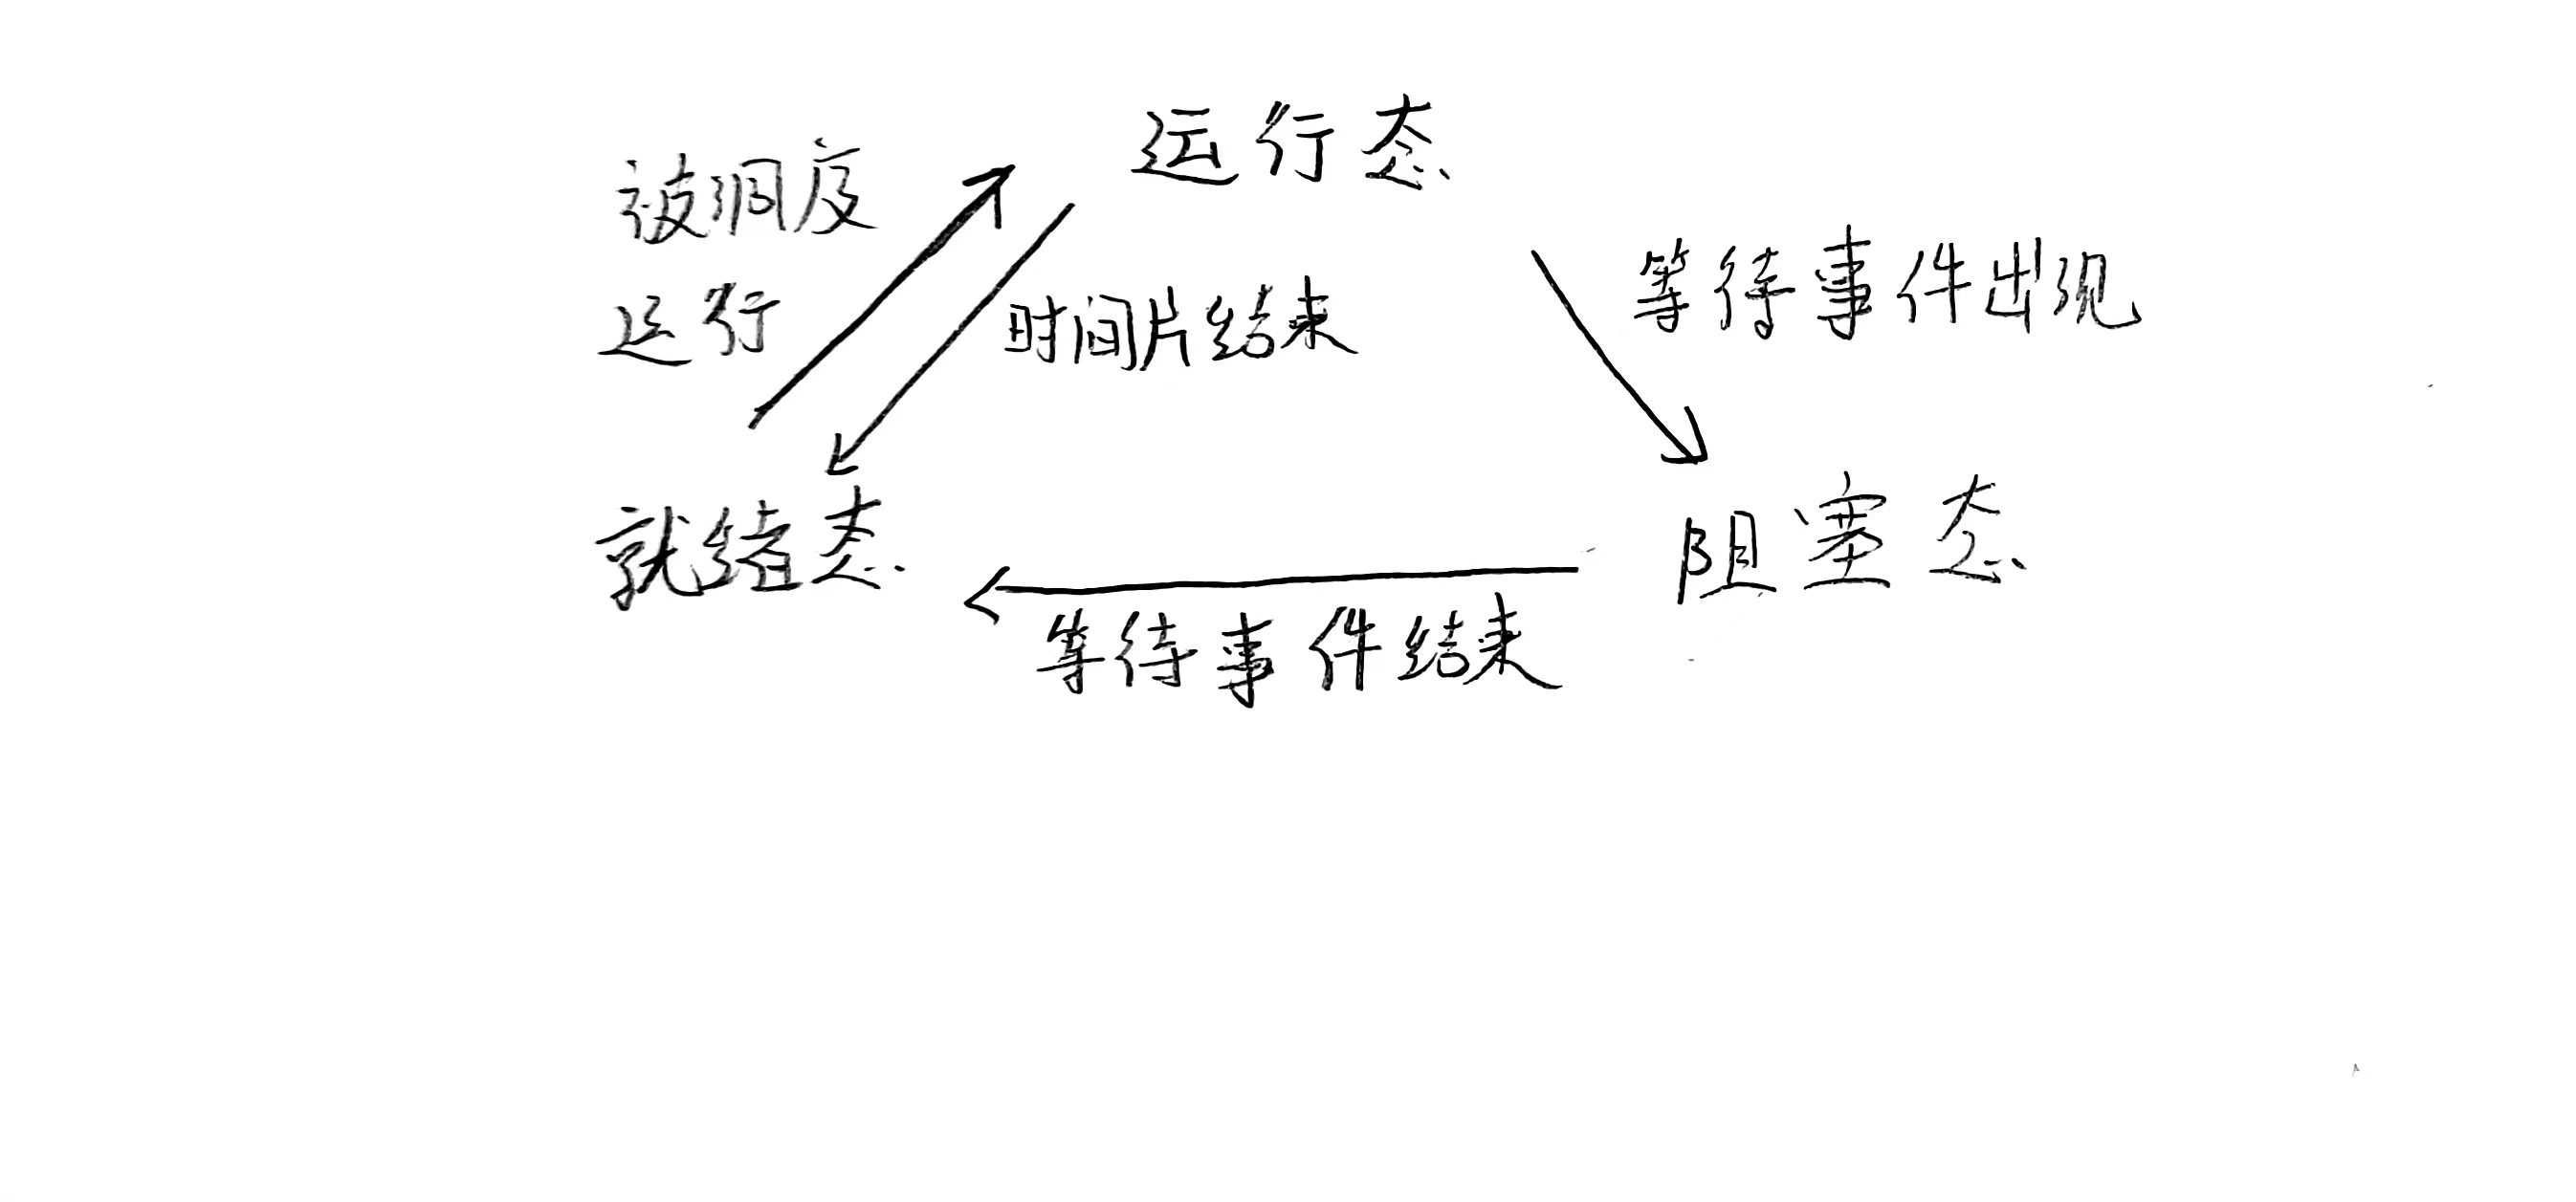 运行态
被调度
运行
时间片结束
等待事件出现
就绪态
阻塞态
等待事件结束